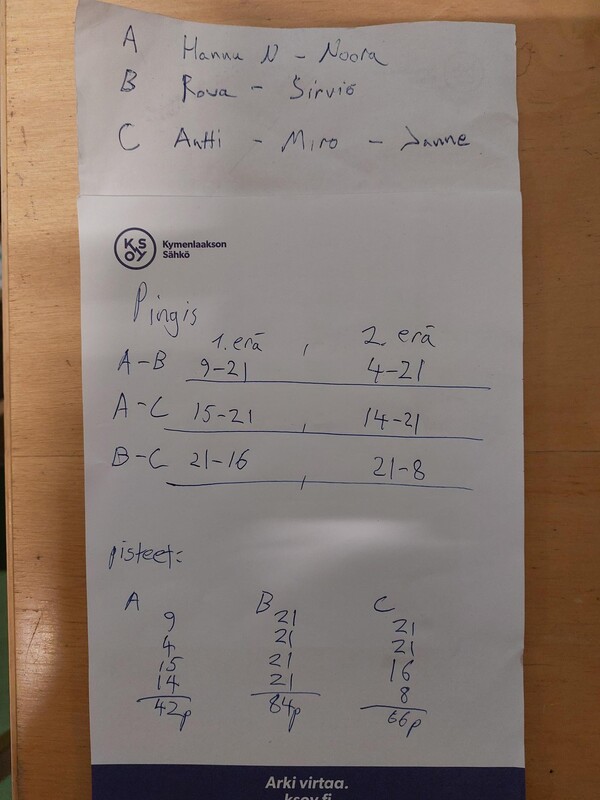 A Hannu N - Noora
B Rowa - Sirviö
C Antti - Miro - Janne
KSOY Kymenlaakson
Sähkö
Pingis
1. erä , 2. erä
A-B 9-21 4-21
A-C 15-21 , 14-21
B-C 21-16 , 21-8
pisteet:
A B C
9 21 21
4 21 21
15 21 16
14 21 8
42p 84p 66p
Arki virtaa.
ksoy.fi